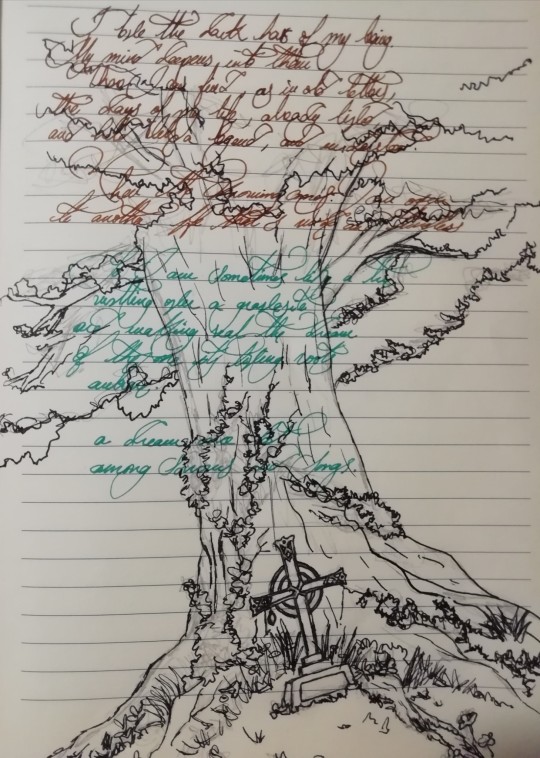 I love the dark hours of my being.
My mind deepens into them.
There I can find, as in old letters,
the days of my life, already lived
and held like a legend, and understood.
Then the knowing comes: I can open
to another life that's wide and timeless
So I am sometimes like a tree
rustling over a gravesite
and making real the dream
of the one its living roots
embrace:
a dream once lost
among sorrows and songs.